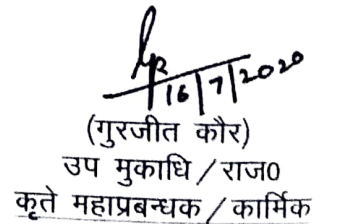 16/7/2020
(गुरजीत कौर)
उप मुकाधि / राज0
कृते महाप्रबन्धक / कार्मिक